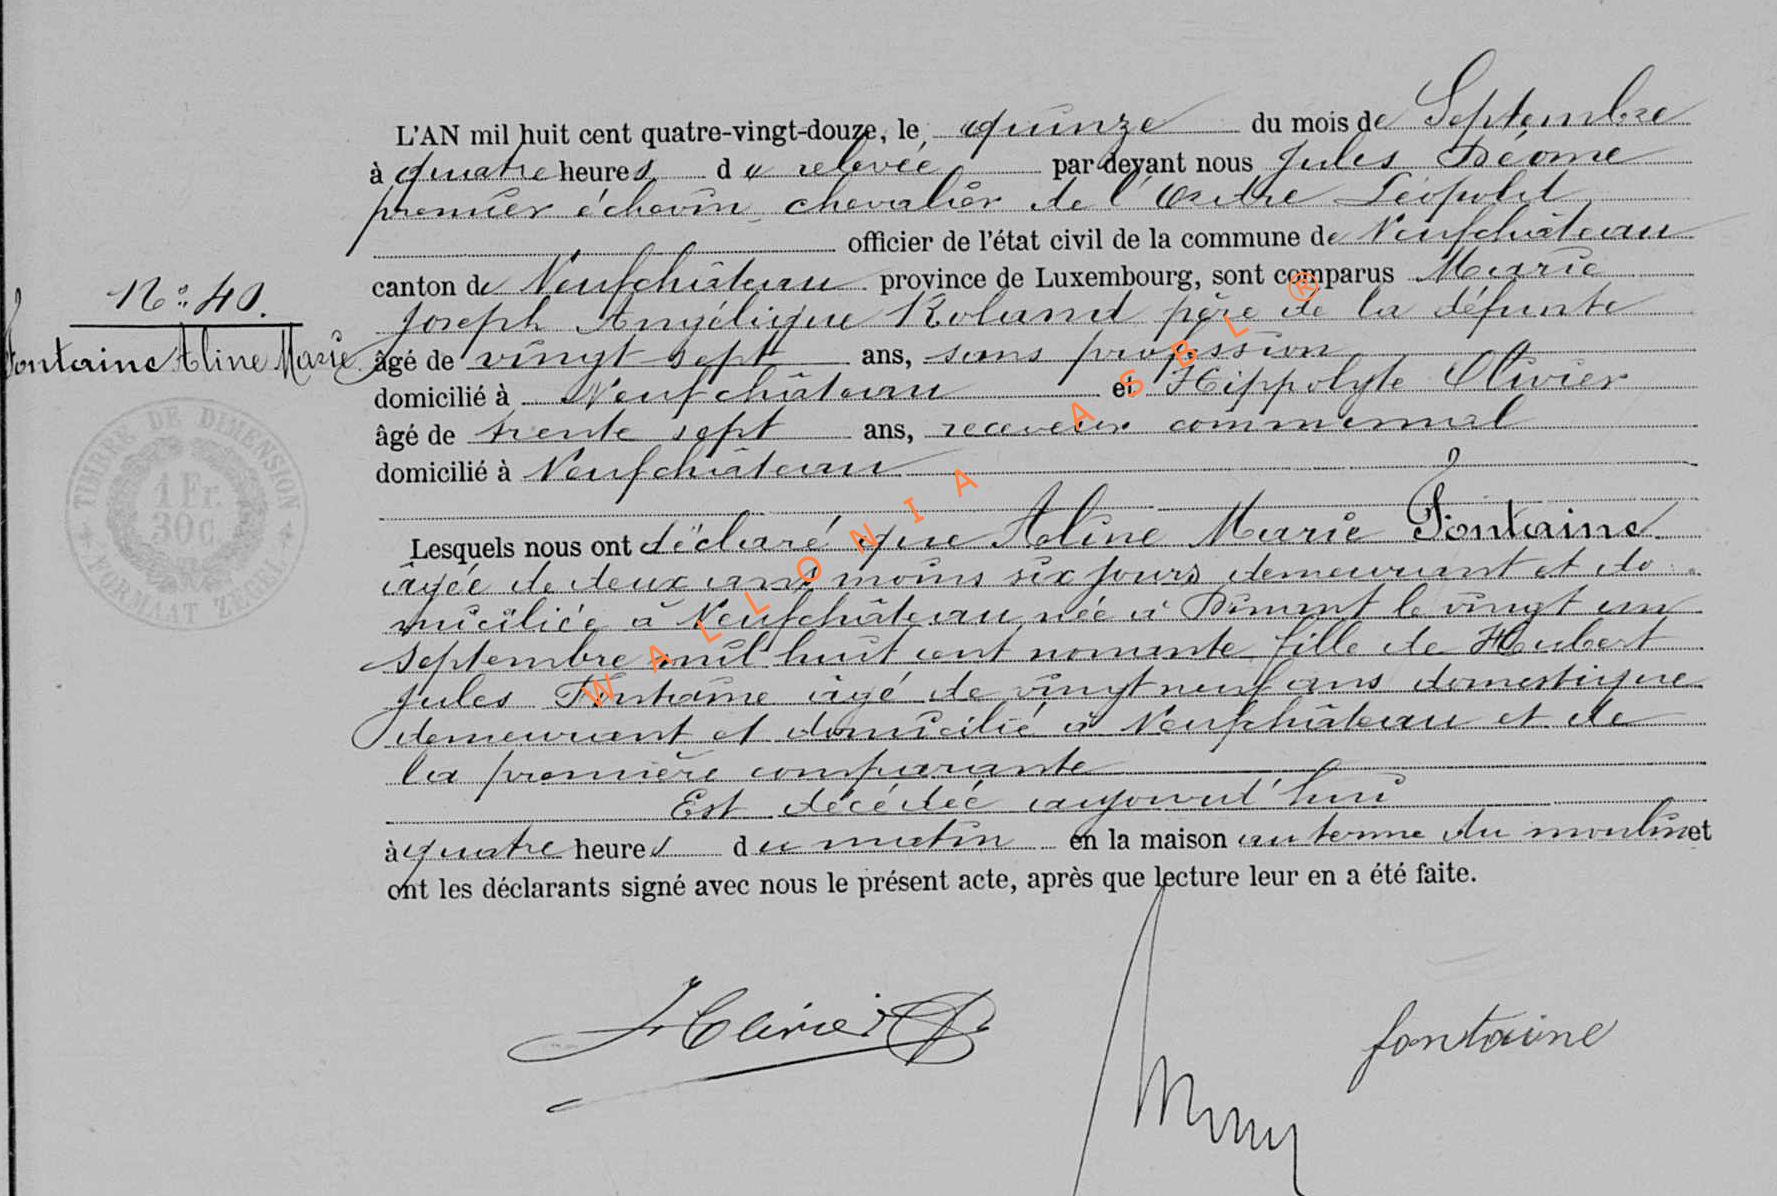 L'AN mil huit cent quatre-vingt-douze, le quinze du mois de Septembre
à quatre heures du relevée par-devant nous Jules Déome
premier échevin, chevalier de l'Ordre Léopold
officier de l'état civil de la commune de Neufchâteau
canton de Neufchâteau province de Luxembourg, sont comparus Marie
Joseph Angélique Roland père de la défunte
âgé de vingt sept ans, sans profession
domicilié à Neufchâteau et Hippolyte Olivier
âgé de trente sept ans, receveur communal
domicilié à Neufchâteau
Lesquels nous ont déclaré que Aline Marie Fontaine
âgée de deux ans moins six jours demeurant et do
miciliée à Neufchâteau née à Dinant le vingt un
septembre mil huit cent nonante fille de Hubert
Jules Fontaine âgé de vingt neuf ans domestique
demeurant et domicilié à Neufchâteau et de
la première comparante
Est décédée aujourd'hui
à quatre heures du matin en la maison au terme du moulin et
ont les déclarants signé avec nous le présent acte, après que lecture leur en a été faite.
N° 40.
Fontaine Aline Marie
TIMBRE DE DIMENSION
1 Fr.
30 C.
FORMAAT ZEGEL
H Olivier
fontaine
WALLONIA ASBL ®